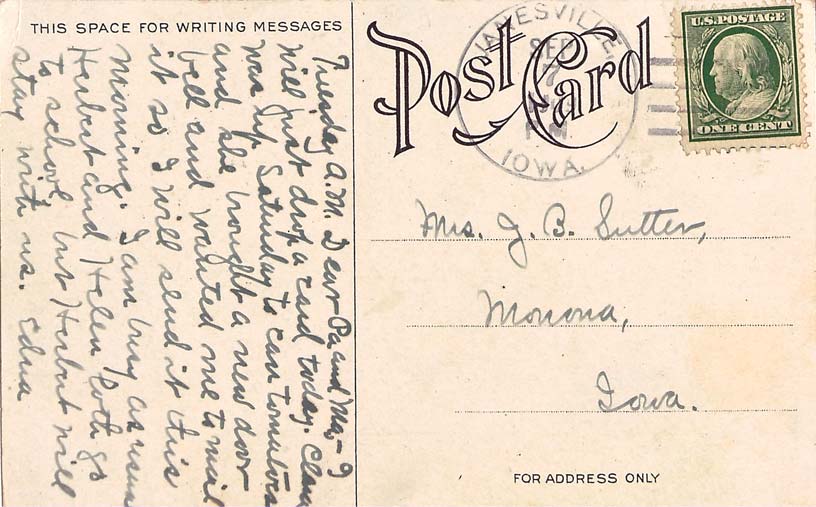 THIS SPACE FOR WRITING MESSAGES
Tuesday A.M. Dear Pa and Ma,- I
will just drop a card today. Clara
was up Saturday to can tomatoes
and she bought a new door
bell and wanted me to mail
it so I will send it this
morning. I am busy as usual
Herbert and Helen both go
to school but Herbert will
stay with us. Edna
Post Card
JANESVILLE,
SEP
7
PM
IOWA.
U.S. POSTAGE
ONE CENT
Mrs. J. B. Sutter,
Monona,
Iowa.
FOR ADDRESS ONLY